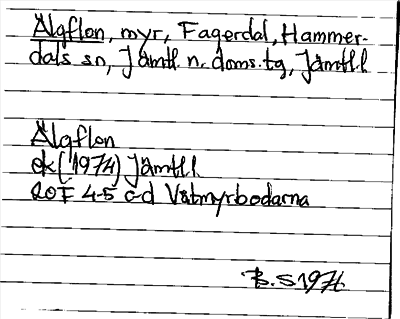 Älgflon, myr, Fagerdal, Hammer-
dals sn, Jämtl. n. doms.tg, Jämtl.l
Älgflon
ek (1974) Jämtl.l
20F 4-5 c-d Våtmyrbodarna
B.S 1976